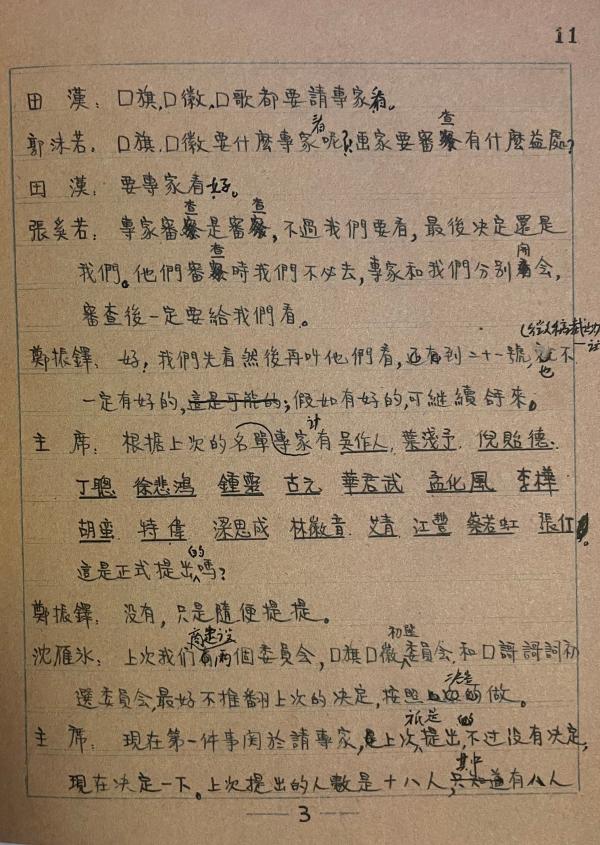 11
田 漢：口旗.口徽.口歌都要請專家看。
郭沫若：口旗.口徽要什麼專家看呢？画家要審查有什麼益處？
田 漢：要專家看好。
張奚若：專家審查是審查，不過我們要看，最後决定還是
我們。他們審查時我們不必去，專家和我們分别開会，
審查後一定要給我們看。
鄭振鐸：好！我們先看然後再叫他們看，还有到二十一號，也不
一定有好的，這是可能的；假如有好的，可继續寄來。
主 席：根据上次的名單專家計有吴作人.葉淺予.倪貽德.
丁聰 徐悲鴻 鍾靈 古元 華君武 孟化風 李樺
胡蛮 特偉 梁思成 林徽音 艾青 江豐 蔡若虹 張仃。
這是正式提出的嗎？
鄭振鐸：没有，只是隨便提提。
沈雁冰：上次我們兩個委員会，口旗口徽初選委員会.和口歌詞初
選委員会，最好不推翻上次的决定，按照决定做。
主 席：現在第一件事関於請專家，上次祇是提出的，不过没有决定，
現在决定一下。上次提出的人數是十八人，其中有八人
3